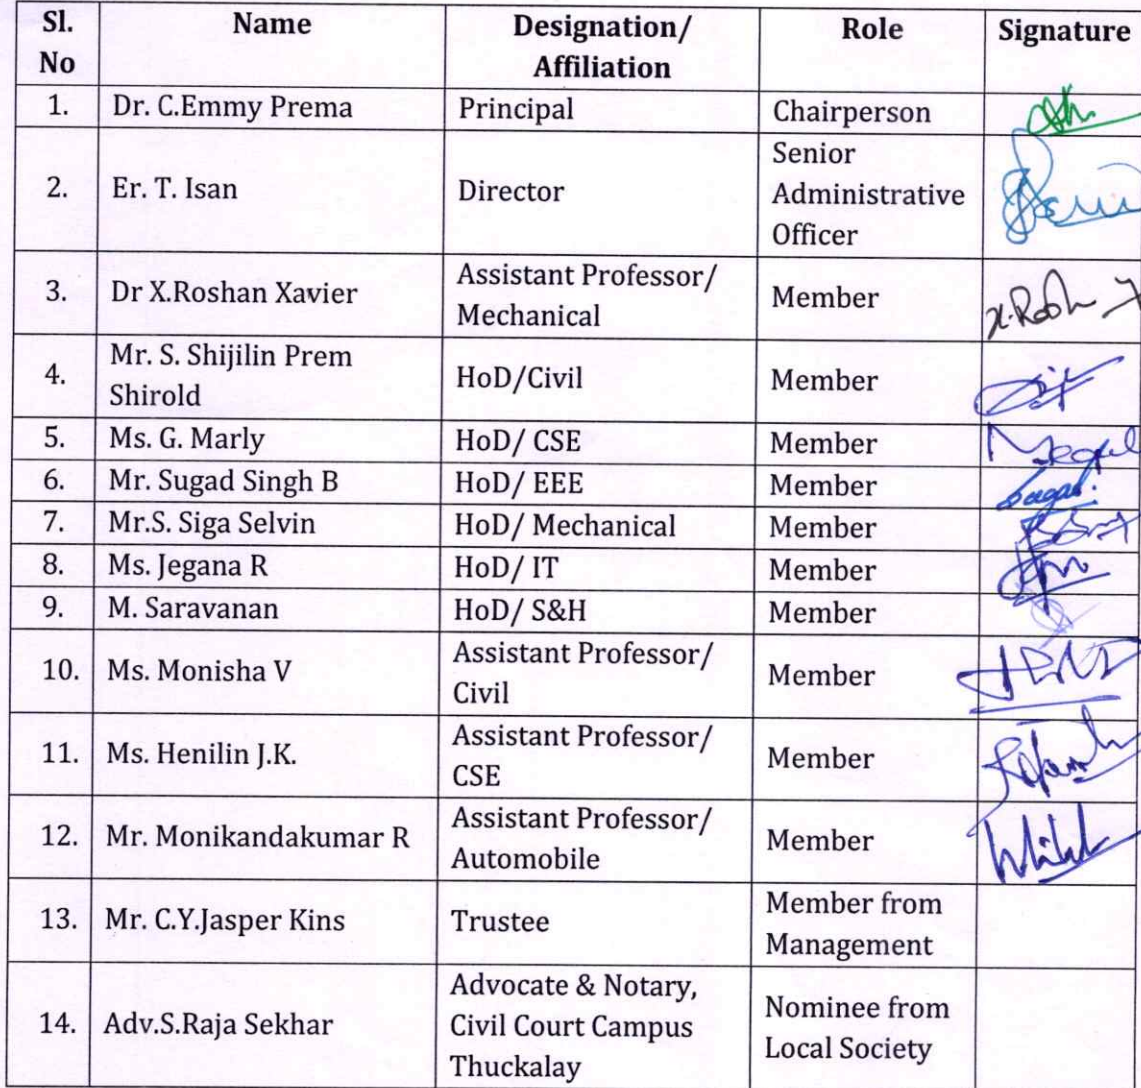 Sl. No Name Designation/ Affiliation Role Signature
1. Dr. C.Emmy Prema Principal Chairperson
2. Er. T. Isan Director Senior Administrative Officer
3. Dr X.Roshan Xavier Assistant Professor/ Mechanical Member
4. Mr. S. Shijilin Prem Shirold HoD/Civil Member
5. Ms. G. Marly HoD/ CSE Member
6. Mr. Sugad Singh B HoD/ EEE Member
7. Mr.S. Siga Selvin HoD/ Mechanical Member
8. Ms. Jegana R HoD/ IT Member
9. M. Saravanan HoD/ S&H Member
10. Ms. Monisha V Assistant Professor/ Civil Member
11. Ms. Henilin J.K. Assistant Professor/ CSE Member
12. Mr. Monikandakumar R Assistant Professor/ Automobile Member
13. Mr. C.Y.Jasper Kins Trustee Member from Management
14. Adv.S.Raja Sekhar Advocate & Notary, Civil Court Campus Thuckalay Nominee from Local Society